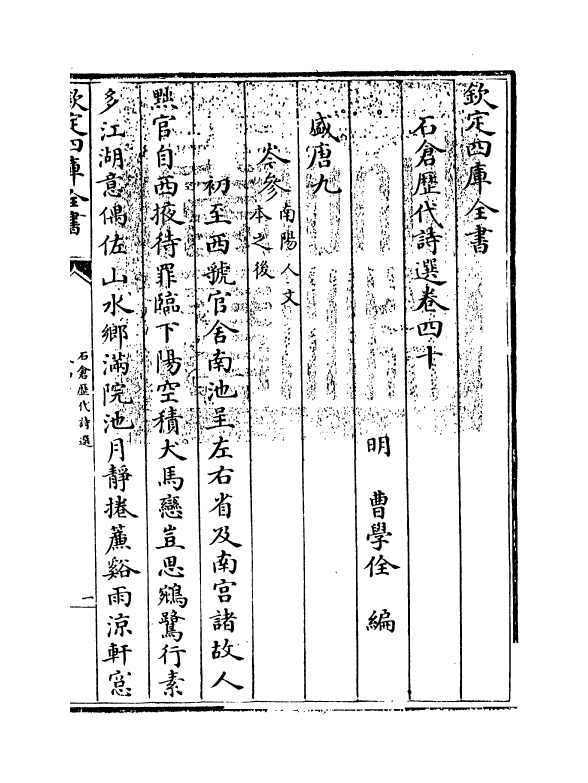 欽定四庫全書
石倉歷代詩選卷四十
明 曹學佺 編
盛唐九
岑參南陽人文本之後
初至西虢官舍南池呈左右省及南宮諸故人
黜官自西掖待罪臨下陽空積犬馬戀豈思鵷鷺行素
多江湖意偶佐山水鄉滿院池月靜捲簾谿雨涼軒窓
欽定四庫全書
石倉歷代詩選
一